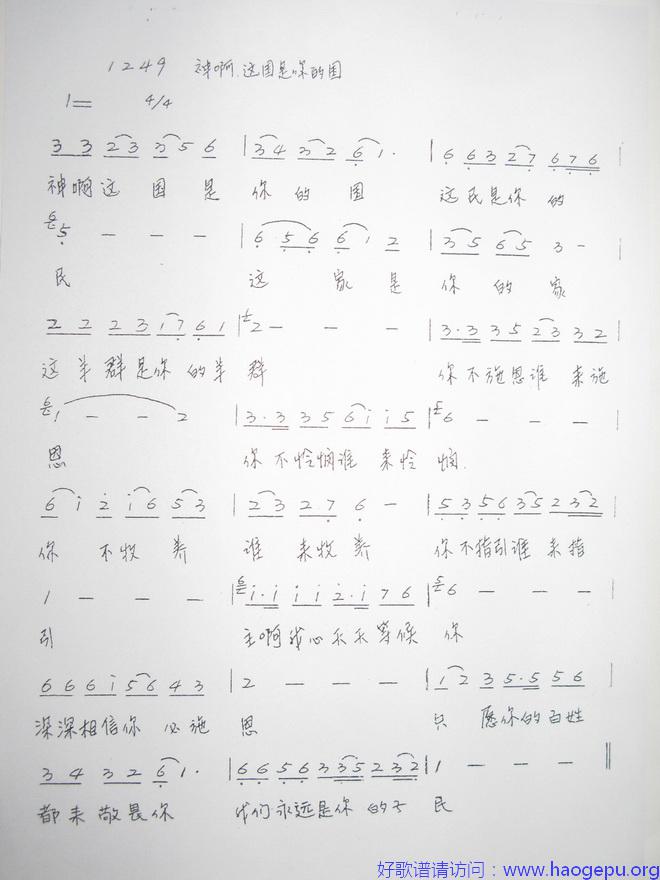 1249 神啊.这国是你的国
1= 4/4
3 3 2 3 3 5 6 | 3 4 3 2 6 1 · | 6 6 3 2 7 6 7 6 |
神啊这 国 是 你 的 国 这民是你 的
5 — — — | 6 5 6 6 1 2 | 3 5 6 5 3 — |
民 这 家 是 你 的 家
2 2 2 3 1 7 6 1 | 2 — — — | 3·3 3 5 2 3 3 2 |
这羊群是你的羊 群 你不施恩谁 来施
1 — — 2 | 3·3 3 5 6 i i 5 | 6 — — — |
恩 你不怜悯谁 来怜 悯.
6 i 2 i 6 5 3 | 2 3 2 7 6 — | 5 3 5 6 3 5 2 3 2 |
你 不牧 养 谁 来牧 养 你不指引谁 来指
1 — — — | i·i i i 2·i 7 6 | 6 — — — |
引 主啊我心天天等候 你
6 6 6 i 5 6 4 3 | 2 — — — | 1 2 3 5·5 5 6 |
深深相信你 必施 恩 只 愿你的百姓
3 4 3 2 6 1 · | 6 6 5 6 3 3 5 2 3 2 | 1 — — — ‖
都来敬畏你 我们永远是你 的子 民
好歌谱请访问：www.haogepu.org